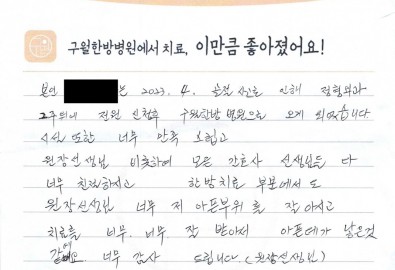 구월한방병원에서 치료, 이만큼 좋아졌어요!
본인 는 2023. 4. 교통사고로 인해 정형외과
전원 신청후 구월한방병원으로 오게 되었습니다
시설 또한 너무 만족스럽고
원장선생님 비롯하여 모든 간호사 선생님들 다
너무 친절하시고 한방치료 부문에서도
원장선생님 너무 제 아픈부위를 잘 아시고
치료를 너무. 너무 잘 받아서 아픈데가 낳은것
같네요. 너무 감사 드립니다. (원장선생님)